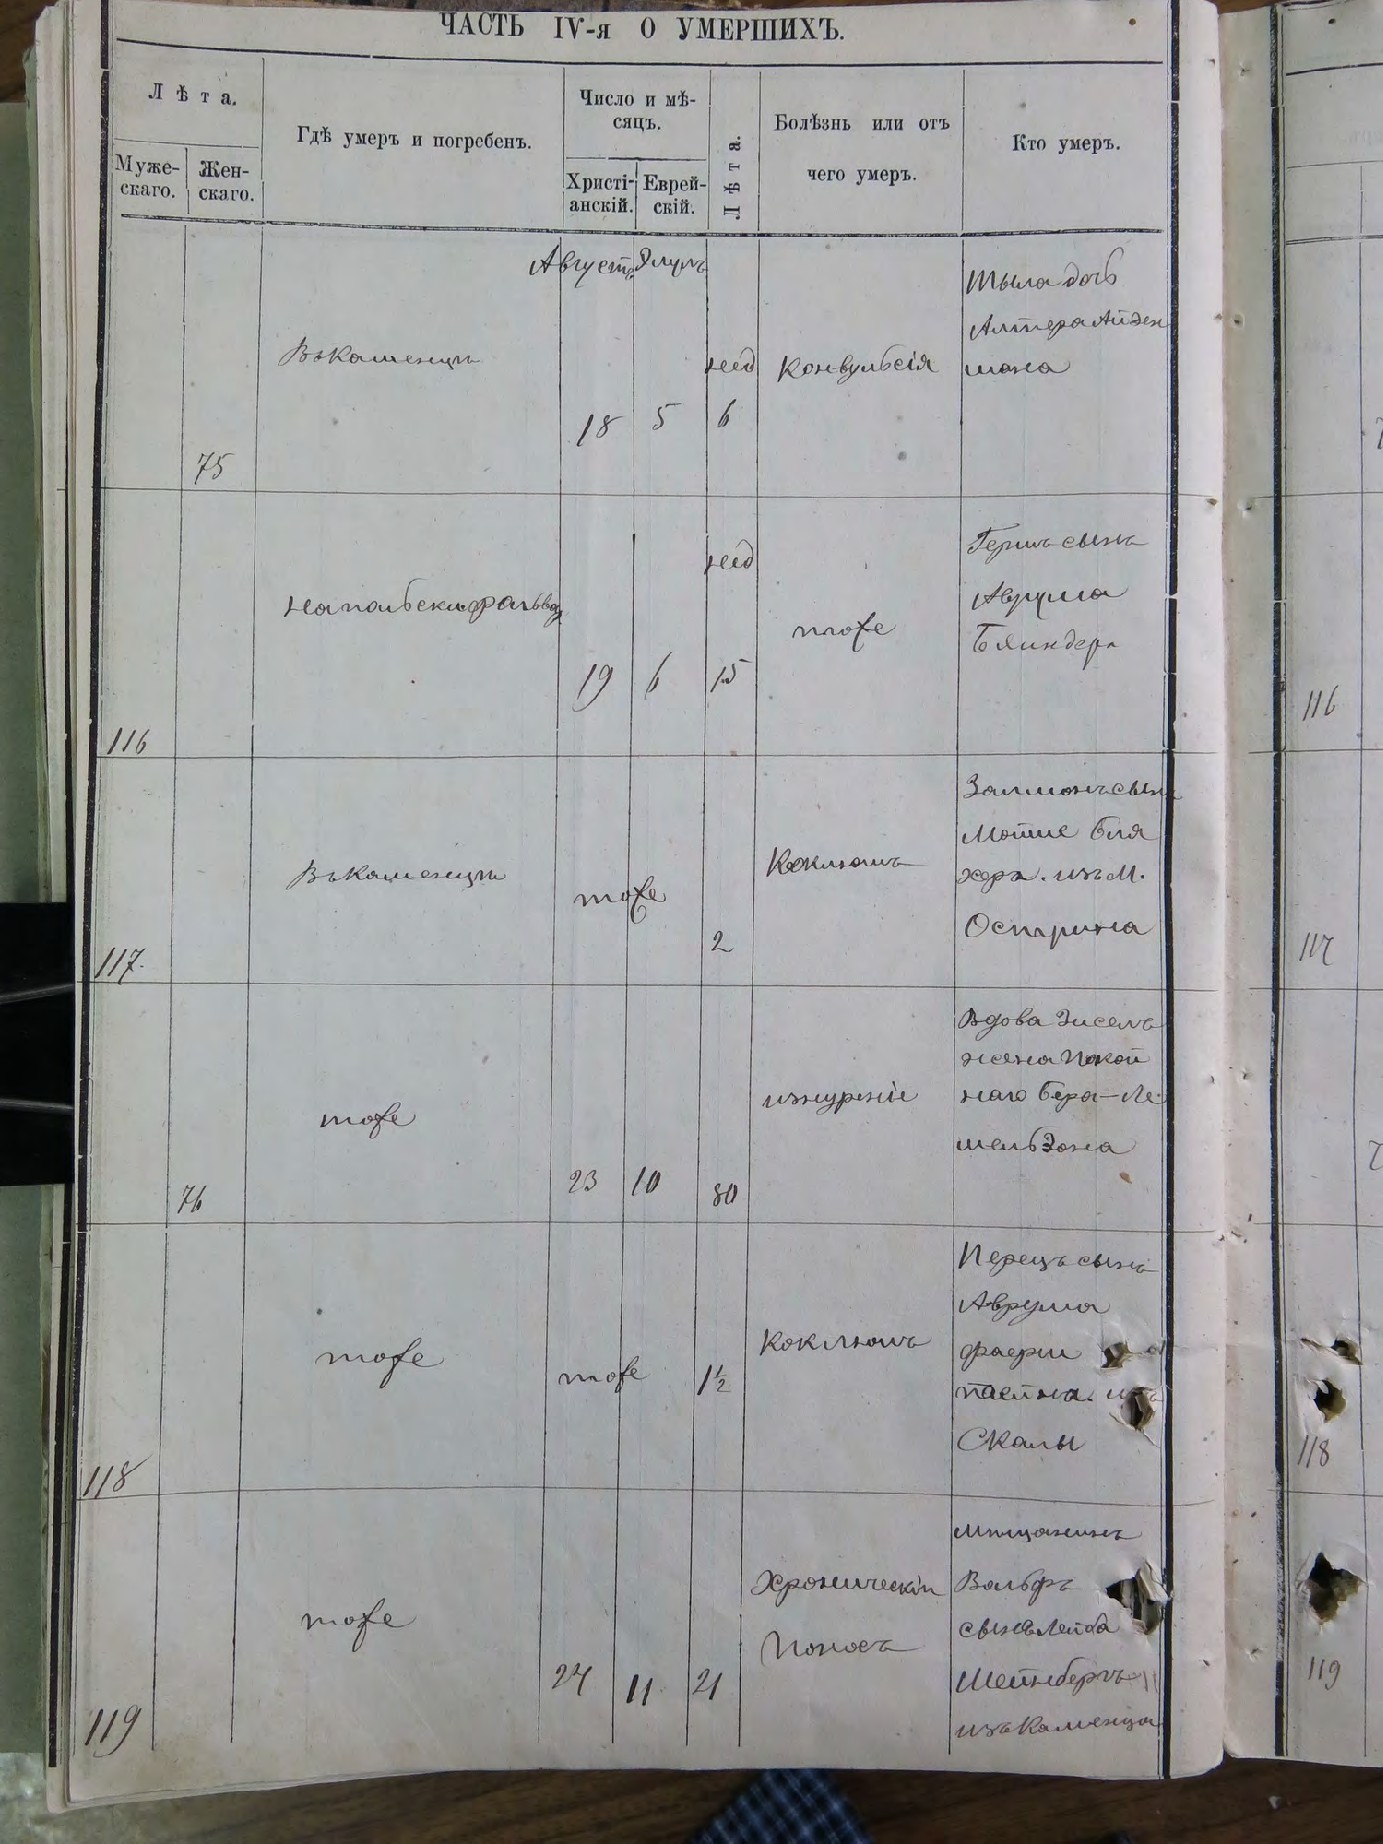 ЧАСТЬ IV-я О УМЕРШИХЪ.
Лѣта.
Муже-
скаго.
Жен-
скаго.
Гдѣ умеръ и погребенъ.
Число и мѣ-
сяцъ.
Христі-
анскій.
Еврей-
скій.
Лѣта.
Болѣзнь или отъ
чего умеръ.
Кто умеръ.
Августъ
Элулъ
75
Въ Каменцѣ
18
5
нед
6
Конвульсія
дочь
Алтера Айзен
мана
116
На польски фольвар
19
6
нед
15
тоже
Гершъ сынъ
Аврума
117.
Въ Каменцѣ
тоже
2
Коклюшъ
Залманъ сынъ
Мотие Бля
хера. изъ М.
76
тоже
23
10
80
изнуреніе
Вдова
жена Покой
наго Бера Ле-
118
тоже
тоже
1½
Коклюшъ
Перецъ сынъ
Аврума
изъ
Скалы
119
тоже
24
11
21
Хроническій
Поносъ
мѣщанинъ
Вольфъ
сынъ Лейба
Шейнбергъ
изъ Каменца
116
117
118
119